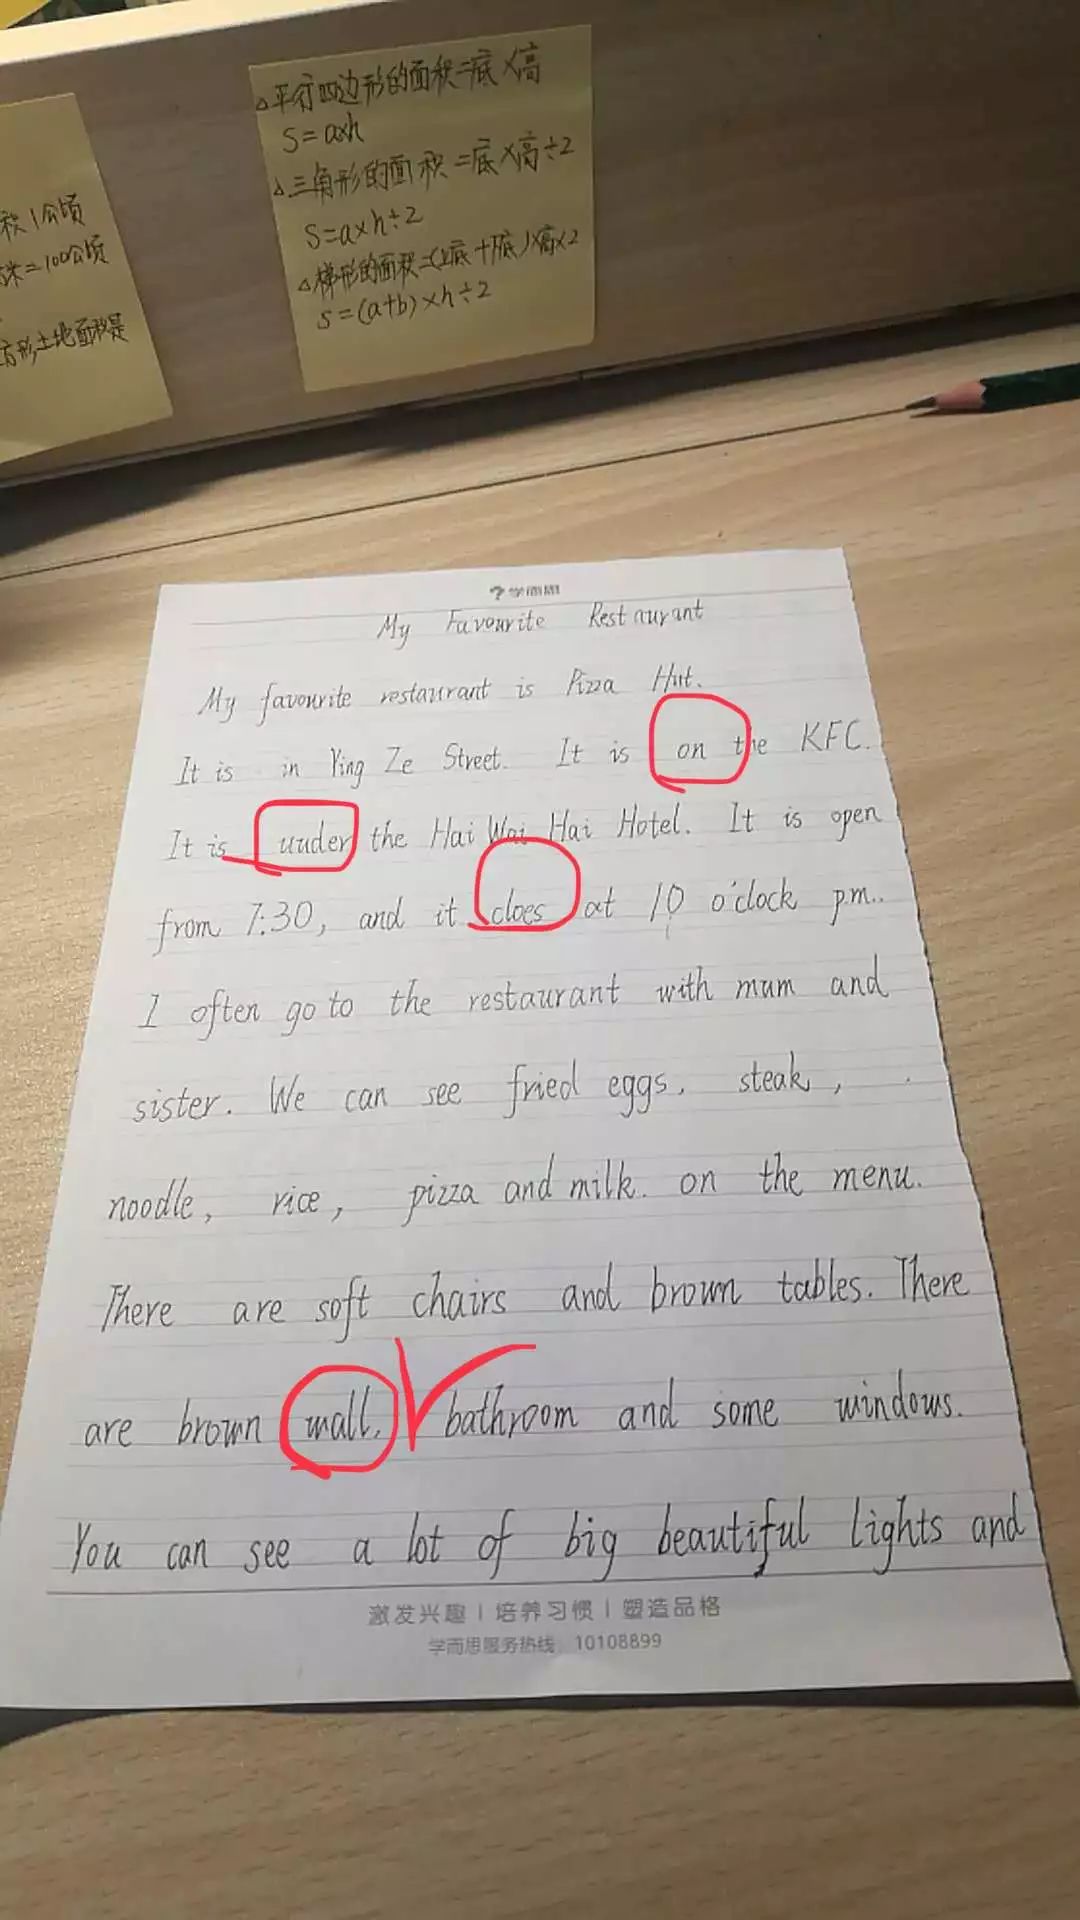 积1公顷
米=100公顷
方形土地面积是
△平行四边形的面积=底×高
S=axh
△三角形的面积=底×高÷2
S=a×h÷2
△梯形的面积=(上底+下底)×高×2
S=(a+b)×h÷2
学而思
My Favourite Restaurant
My favourite restaurant is Pizza Hut.
It is in Ying Ze Street. It is on the KFC.
It is under the Hai Wai Hai Hotel. It is open
from 7:30, and it cloes at 10 o'clock p.m..
I often go to the restaurant with mum and
sister. We can see fried eggs, steak,
noodle, rice, pizza and milk. on the menu.
There are soft chairs and brown tables. There
are brown wall, bathroom and some windows.
You can see a lot of big beautiful lights and
激发兴趣 | 培养习惯 | 塑造品格
学而思服务热线：10108899